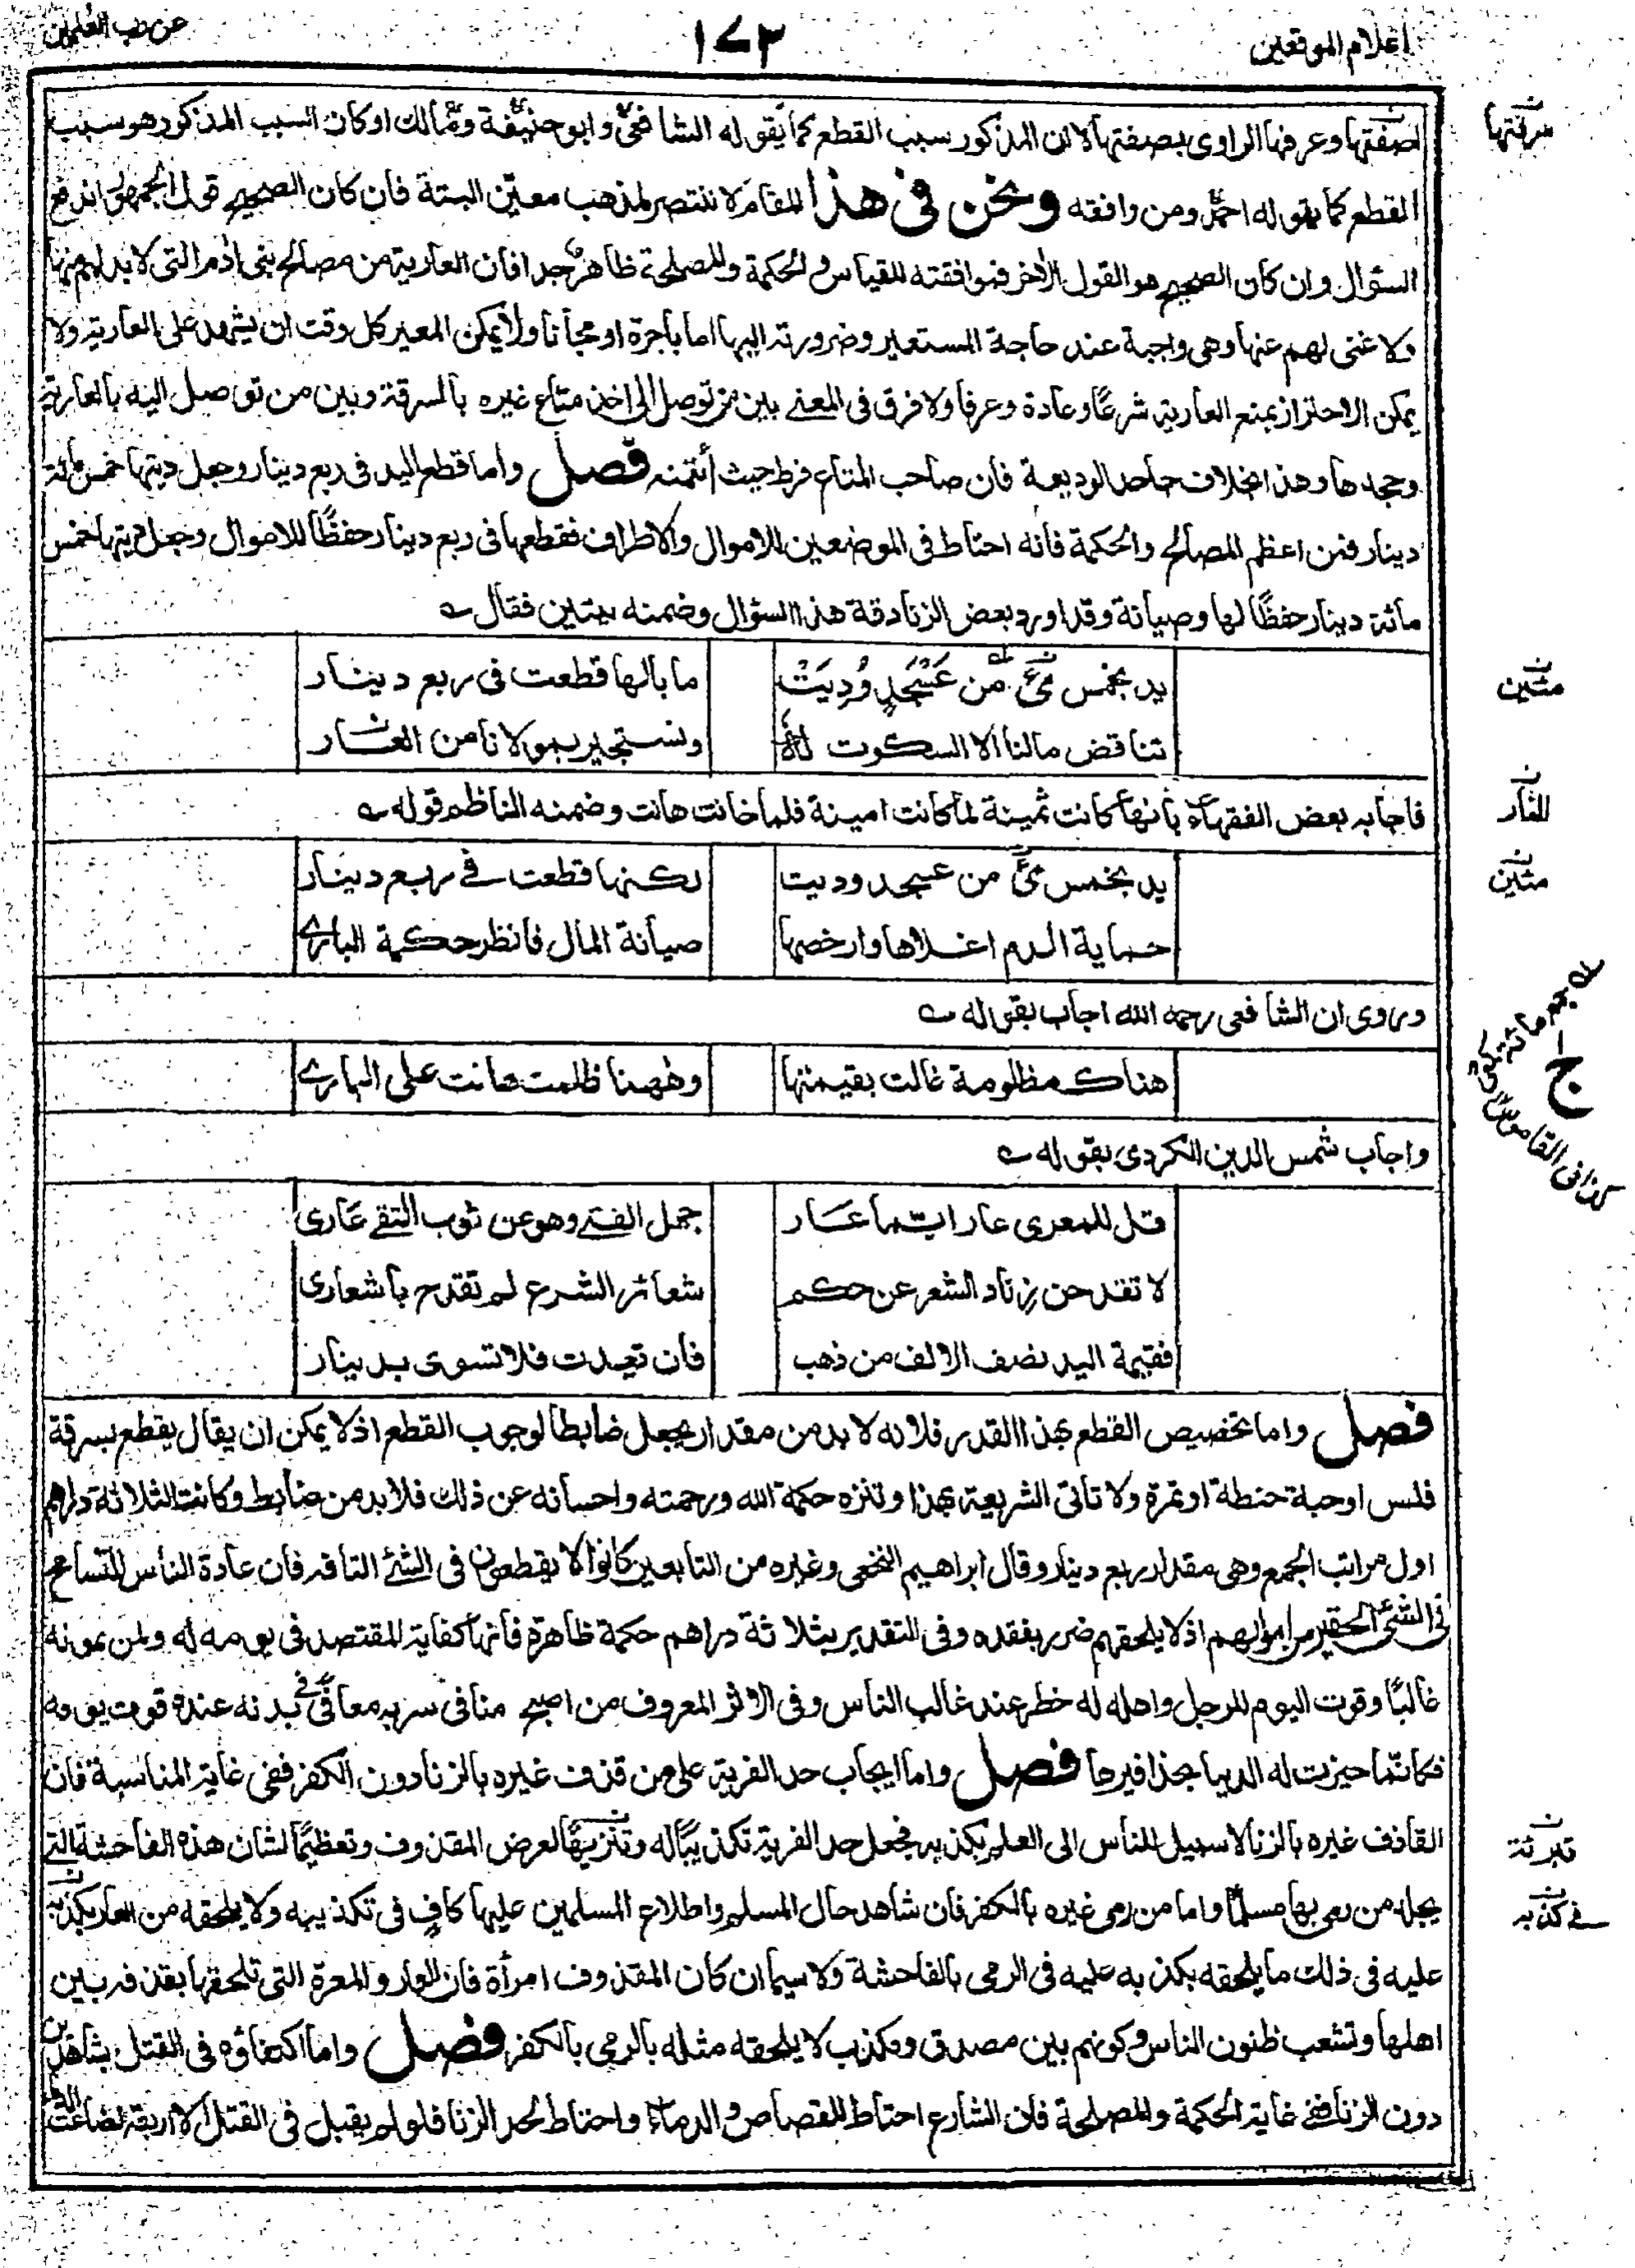 اعلام الموقعين
١٧٣
عن رب العلمين
لصفتها وعرفها الراوى بصفتها لا لان المذكور سبب القطع كما يقوله الشافعى وابو حنيفة ومالك او كان السبب المذكور هو سبب
القطع كما يقوله احمد ومن وافقه ونحن فى هذا المقام لا ننتصر لمذهب معين البتة فان كان الصحيح قول الجمهور اندفع
السؤال وان كان الصحيح هو القول الاخر فموافقته للقياس والحكمة والمصلحة ظاهرة جدا فان العارية من مصالح بنى ادم التى لا بد لهم منها
ولا غنى لهم عنها وهى واجبة عند حاجة المستعير وضرورته اليها اما باجرة او مجانا ولا يمكن المعير كل وقت ان يشهد على العارية ولا
يمكن الاحتراز بمنع العارية شرعًا وعادة وعرفا ولا فرق فى المعنے بين من توصل الى اخذ متاع غيره بالسرقة وبين من توصل اليه بالعارية
وجحدها وهذا بخلاف جاحد الوديعة فان صاحب المتاع فرط حيث أئتمنه فصل واما قطع اليد فى ربع دينار وجعل ديتها خمس مائة
دينار فمن اعظم المصالح والحكمة فانه احتاط فى الموضعين للاموال والاطراف فقطعها فى ربع دينار حفظًا للاموال وجعل ديتها خمس
مائة دينار حفظًا لها وصيانة وقد اورد بعض الزنادقة هذا السؤال وضمنه بيتين فقال
يد بخمس مئ من عَسْجَدٍ وُدِيَتْ ما بالها قطعت فى ربع دينار
تناقض مالنا الا السكوت له ونستجير بمولانا من العار
فاجابه بعض الفقهاء بانها كانت ثمينة لما كانت امينة فلما خانت هانت وضمنه الناظم قوله
يد بخمس مئ من عسجد وديت لكنها قطعت فے ربع دينار
حماية الدم اغلاها وارخصها صيانة المال فانظر حكمة البارے
وروى ان الشافعى رحمه الله اجاب بقوله
هناك مظلومة غالت بقيمتها وههنا ظلمت هانت على البارے
واجاب شمس الدين الكردى بقوله
قل للمعرى عار ايّما عار جهل الفتے وهو عن ثوب التقے عارى
لا تقدحن زناد الشعر عن حكم شعائر الشرع لم تقدح باشعارى
فقيمة اليد نصف الالف من ذهب فان تعدت فلا تسوى بدينار
فصل واما تخصيص القطع بهذا القدر فلانه لا بد من مقدار يجعل ضابطا لوجوب القطع اذ لا يمكن ان يقال يقطع بسرقة
فلس او حبة حنطة او تمرة ولا تاتى الشريعة بهذا وتنزه حكمة الله ورحمته واحسانه عن ذلك فلا بد من ضابط وكانت الثلاثة دراهم
اول مراتب الجمع وهى مقدار ربع دينار وقال ابراهيم النخعى وغيره من التابعين كانوا لا يقطعون فى الشئ التافه فان عادة الناس التسامح
فى الشئ الحقير من اموالهم اذ لا يلحقهم ضرر بفقده وفى التقدير بثلاثة دراهم حكمة ظاهرة فانها كفاية المقتصد فى يومه له ولمن يمونه
غالبًا وقوت اليوم للرجل واهله له خطر عند غالب الناس وفى الاثر المعروف من اصبح منا فى سربه معافًى فے بدنه عنده قوت يومه
فكانّما حيزت له الدنيا بحذافيرها فصل واما ايجاب حد الفرية على من قذف غيره بالزنا دون الكفر ففى غاية المناسبة فان
القاذف غيره بالزنا لا سبيل للناس الى العلم بكذبه فجعل حد الفرية تكذيبًا له وتنزيهًا لعرض المقذوف وتعظيمًا لشان هذه الفاحشة التے
يجلد من رمى بها مسلمًا واما من رمى غيره بالكفر فان شاهد حال المسلم واطلاع المسلمين عليها كافٍ فى تكذيبه ولا يلحقه من العار بكذبه
عليه فى ذلك ما يلحقه بكذبه عليه فى الرمى بالفاحشة ولا سيما ان كان المقذوف امرأة فان العار والمعرة التى تلحقها بقذفه بين
اهلها وتشعب ظنون الناس وكونهم بين مصدق ومكذب لا يلحقه مثله بالرمى بالكفر فصل واما اكتفاؤه فى القتل بشاهدين
دون الزنا ففے غاية الحكمة والمصلحة فان الشارع احتاط للقصاص والدماء واحتاط لحد الزنا فلو لم يقبل فى القتل الا اربعة لضاعت الدماء
سرقتها
مئين
للنار
مئين
له جمع مائة
ج
كذا فى القاموس
تبرئة
فے كذبه